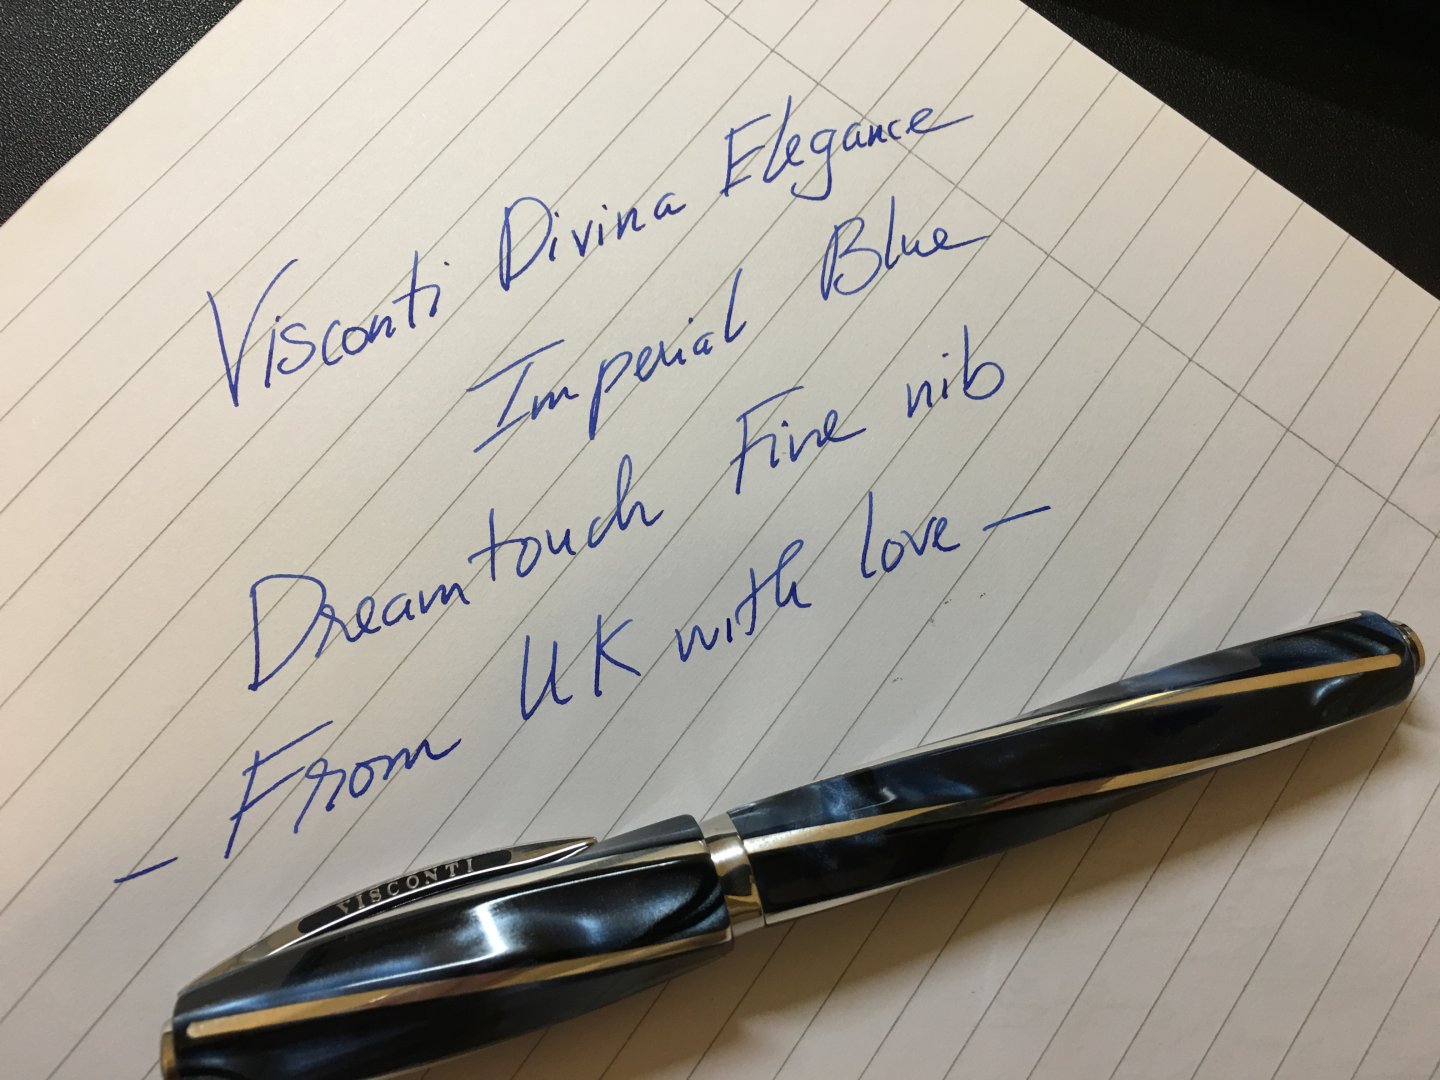 Visconti Divina Elegance
Imperial Blue
Dreamtouch Fine nib
- From UK with love -
VISCONTI